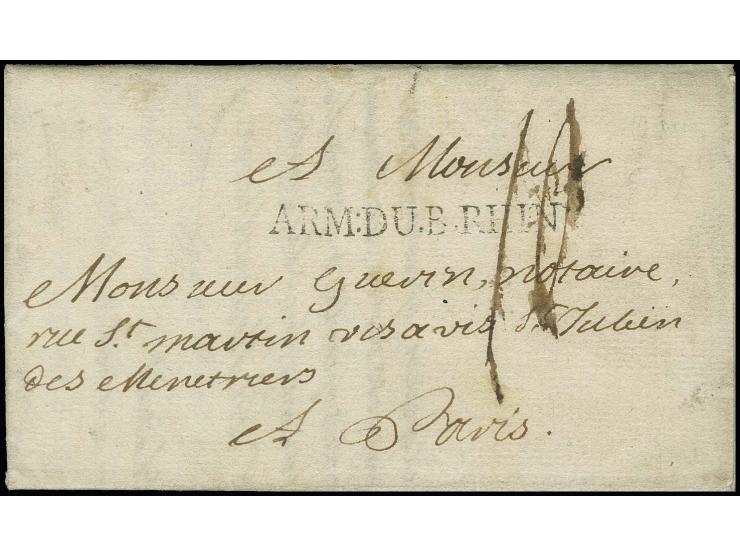 A Monsieur
ARM:DU.B.RHIN
Monsieur Guerin, notaire,
rue St. martin vis a vis St. Julien
des Menetriers
A Paris.